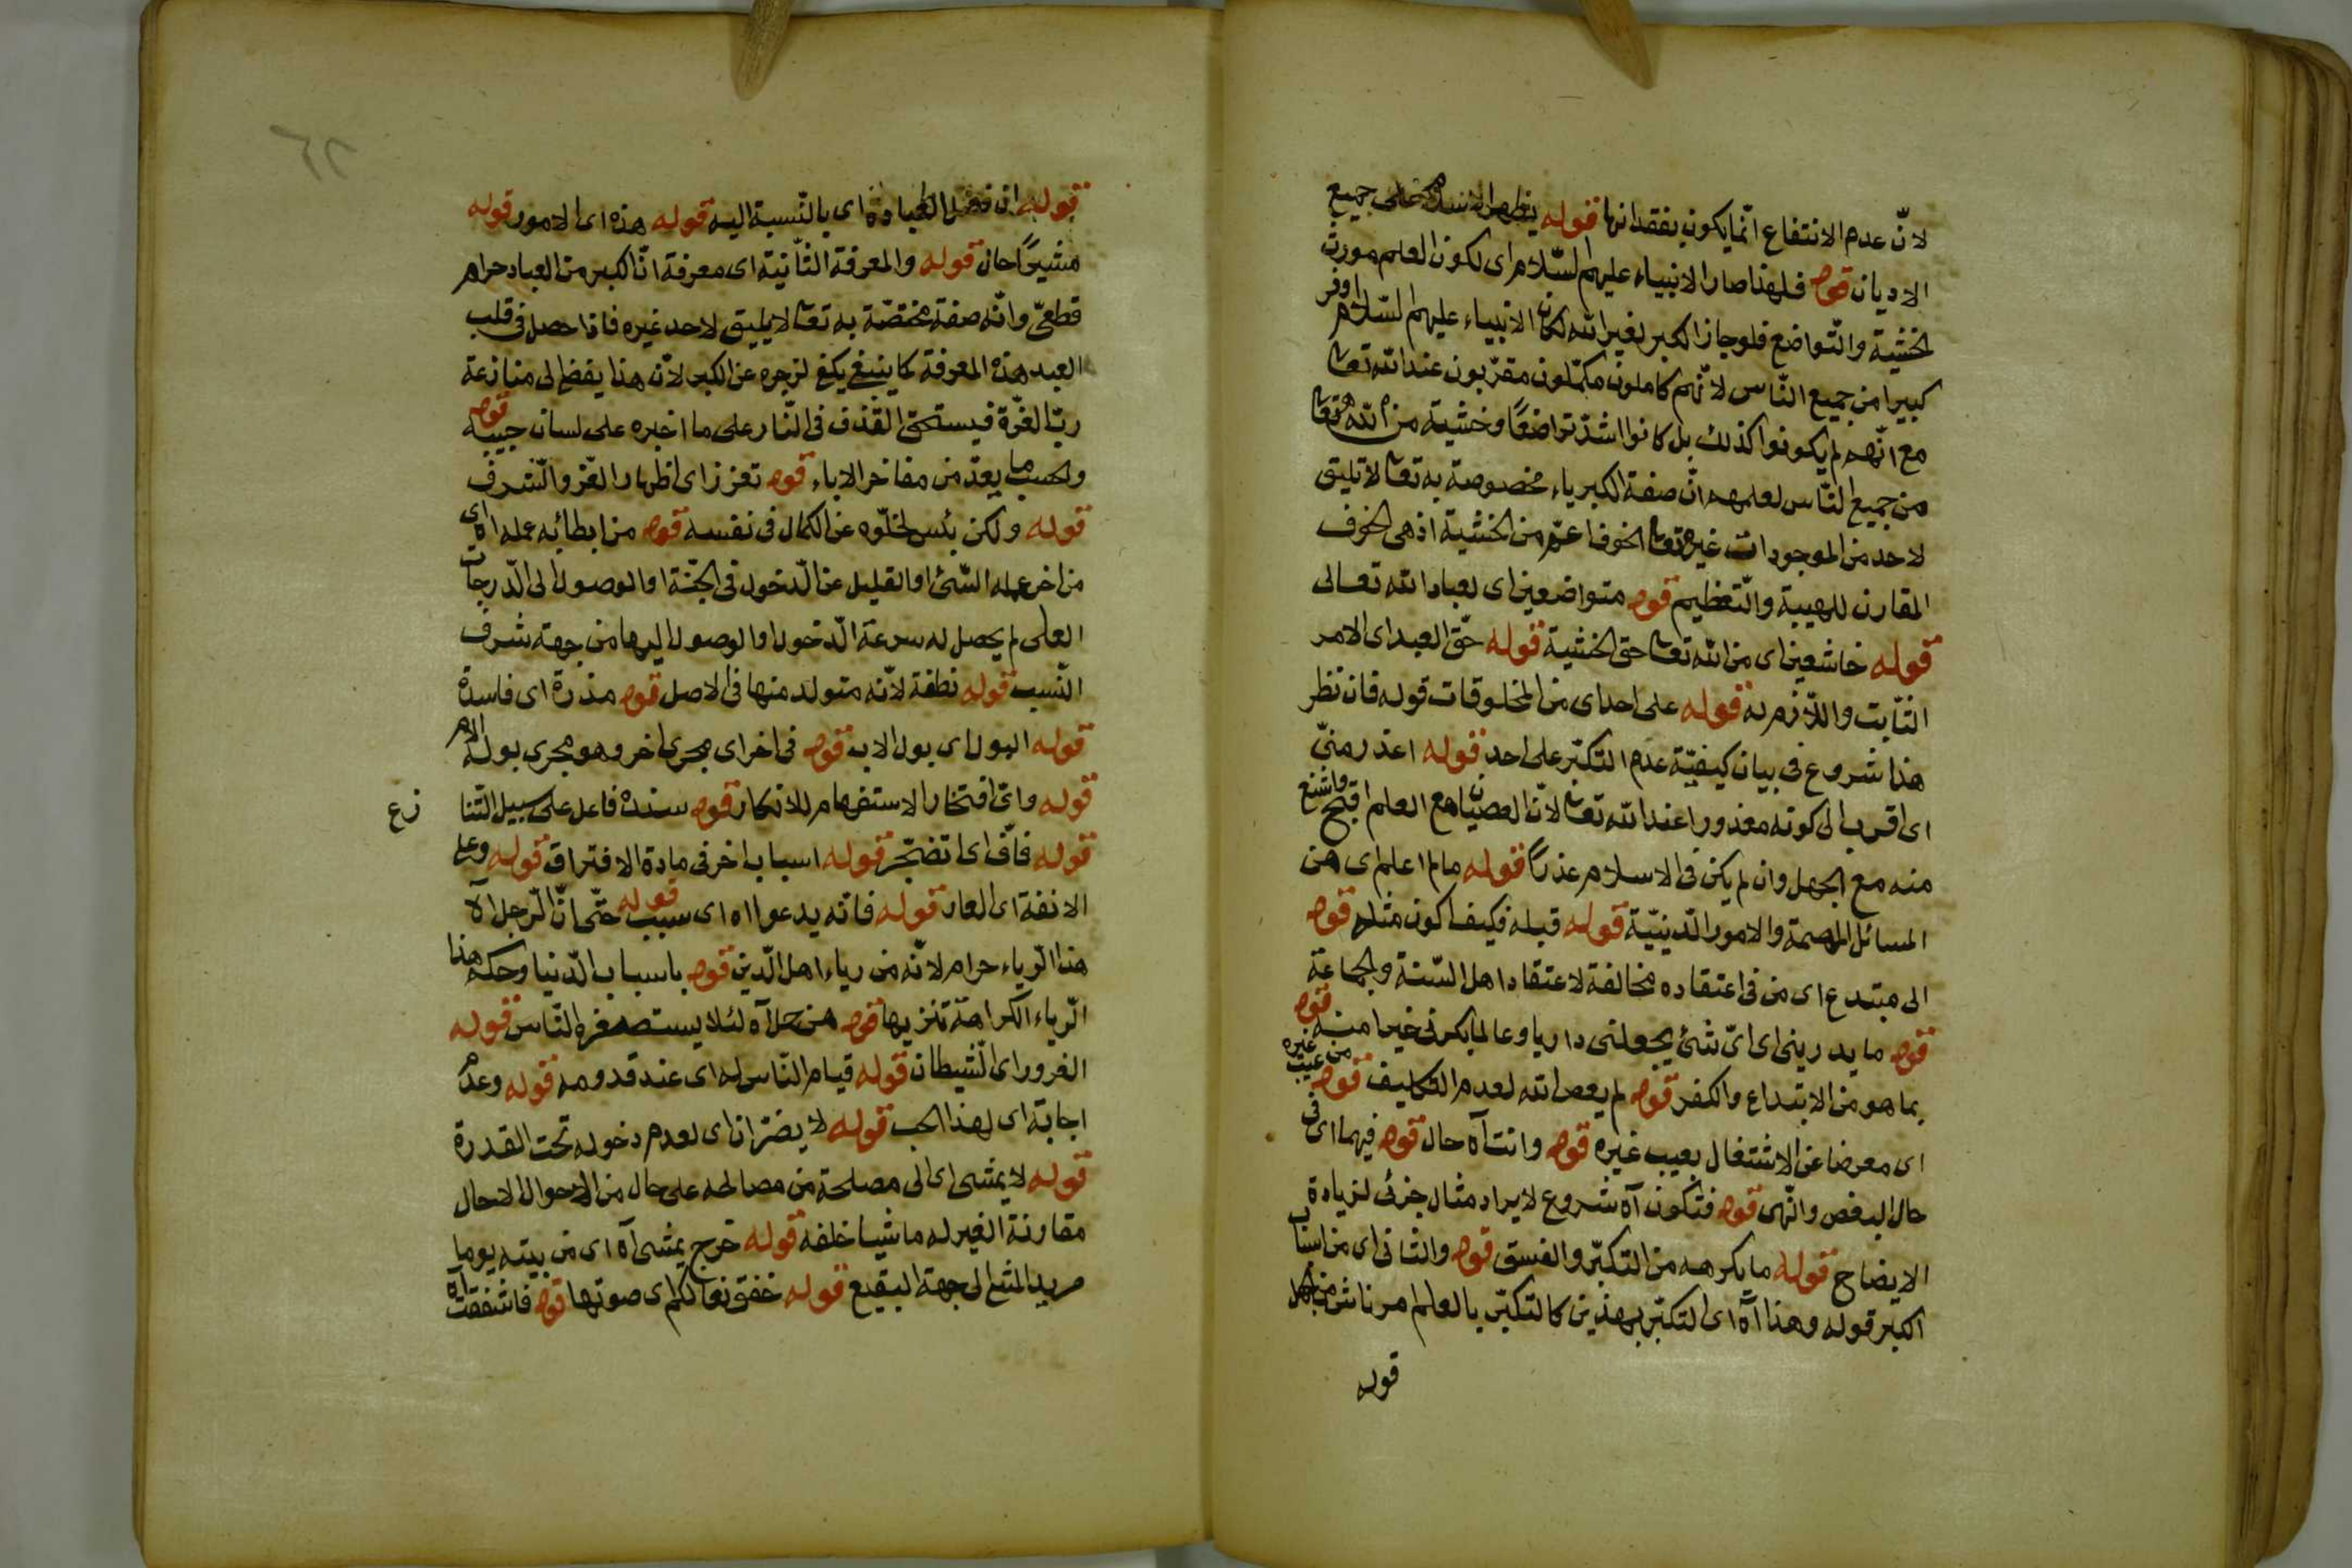 لانّ عدم الانتفاع انّما يكون بفقدانها قوله يظهر الاسلام على جميع
الاديان قوله فلهذا صار الانبياء عليهم السّلام اى لكون العلم مورث
الخشية والتّواضع فلو جاز الكبر لغير الله لكان الانبياء عليهم السّلام اوفر
كبيرا من جميع النّاس لانّهم كاملون مكمّلون مقرّبون عند الله تعا
مع انّهم لم يكونوا كذلك بل كانوا اشدّ تواضعًا وخشية من الله تعا
من جميع النّاس لعلمهم انّ صفة الكبرياء مخصوصة به تعا لا تليق
لاحد من الموجودات غيره تعا الخوف اعمّ من الخشية اذ هى الخوف
المقارن للهيبة والتّعظيم قوله متواضعين اى لعباد الله تعالى
قوله خاشعين اى من الله تعا حق الخشية قوله حقّ العبد اى الامر
الثّابت واللّازم له قوله على احد اى من المخلوقات قوله فان نظر
هذا شروع فى بيان كيفيّة عدم التكبّر على احد قوله اعذر منّي
اى اقرب الى كونه معذورا عند الله تعا لانّ العصيان مع العلم اقبح واشنع
منه مع الجهل وان لم يكن فى الاسلام عذرًا قوله ما لم اعلم اى من
المسائل المهمة والامور الدّينيّة قوله قبله فكيف اكون مثله قوله
الى مبتدع اى من فى اعتقاده مخالفة لاعتقاد اهل السّنة والجماعة
قوله ما يدرينى اى اىّ شئ يجعلنى داريا وعالما بكونى خيرا منه قوله
بما هو من الابتداع والكفر قوله لم يعص الله لعدم التكليف قوله من عيب غيره
اى معرضا عن الاشتغال بعيب غيره قوله وانت آه حال قوله فيهما اى فى
حال البغض والنّهى قوله فتكون آه شروع لايراد مثال جزئى لزيادة
الايضاح قوله ما يكرهه من التكبّر والفسق قوله والثانى اى من اسباب
الكبر قوله وهذا آه اى التكبّر بهذين كالتكبّر بالعلم مر ناش من الجهل
قوله
قوله ان فضل العبادة اى بالنّسبة اليه قوله هذه اى الامور قوله
مشيرًا حال قوله والمعرفة الثّانية اى معرفة انّ الكبر من العباد حرام
قطعىّ وانّه صفة مختصّة به تعا لا يليق لاحد غيره فاذا حصل فى قلب
العبد هذه المعرفة كما ينبغى يكفى لزجره عن الكبر لانّ هذا يفضى الى منازعة
ربّ العزّة فيستحق القذف فى النّار على ما اخبره على لسان حبيبه قوله
والحسب ما يعدّ من مفاخر الاباء قوله تعزز اى اظهار العزّ والشّرف
قوله ولكن بئس لخلّوه عن الكمال فى نفسه قوله من ابطا به عمله اه اى
من اخر عمله السّئ او القليل عن الدّخول فى الجّنة او الوصول الى الدّرجات
العلى لم يحصل له سرعة الدّخول او الوصول اليها من جهة شرف
النّسب قوله نطفة لانّه متولد منها فى الاصل قوله مذرة اى فاسدة
قوله البول اى بول الاب قوله فى اخر اى مجرى اخر وهو مجرى بول الام
قوله واىّ افتخار الاستفهام للانكار قوله سنده فاعل على سبيل التّنا
زع
قوله فافّ اى اتضجّر قوله اسباب اخر فى مادة الافتراق قوله وعلى
الانفة اى العار قوله فانه يدعو اه اى سبب قوله حتّى انّ الرّجل آه
هذا الرّياء حرام لانّه من رياء اهل الدّين قوله باسباب الدّنيا وحكم هذا
الرّياء الكراهة تنزيها قوله من حل آه لئلا يستصغره النّاس قوله
الغرور اى الشّيطان قوله قيام النّاس له اى عند قدومه قوله وعدم
اجابة اى لهذا الحب قوله لا يضرّ ان اى لعدم دخوله تحت القدرة
قوله لا يمشى اى الى مصلحة من مصالحه على حال من الاحوال الا حال
مقارنة الغير له ماشيا خلفه قوله خرج يمشى آه اى من بيته يوما
مريد المشى الى جهة البقيع قوله خفق نعالكم اى صوتها قوله فاشفقت آه